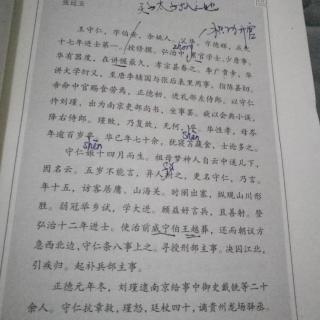 张廷玉
王守仁，字伯安，余姚人。父华，字德辉，成化
十七年进士第一。授修撰。弘治中，累官学士、少詹事。
华有器度，在讲幄最久，孝宗甚眷之。李广贵幸，华
讲大学衍义，至唐李辅国与张后表里用事，指陈甚切。
帝命中官赐食劳焉。正德初，进礼部左侍郎。以守仁
忤刘瑾，出为南京吏部尚书，坐事罢。旋以会典小误，
降右侍郎。瑾败，乃复故，无何卒。华性孝，母岑
年逾百岁卒。华已年七十余，寝苫蔬食，士论多之。
shěn
守仁娠十四月而生。祖母梦神人自云中送儿下，
因名云。五岁不能言，异人拊之，更名守仁，乃言。
年十五，访客居庸、山海关。时阑出塞，纵观山川形
胜。弱冠举乡试，学大进。顾益好言兵，且善射。登
弘治十二年进士。使治前威宁伯王越葬，还而朝议方
急西北边，守仁条八事上之。寻授刑部主事。决囚江北，
引疾归。起补兵部主事。
正德元年冬，刘瑾逮南京给事中御史戴铣等二十
余人。守仁抗章救，瑾怒，廷杖四十，谪贵州龙场驿丞。